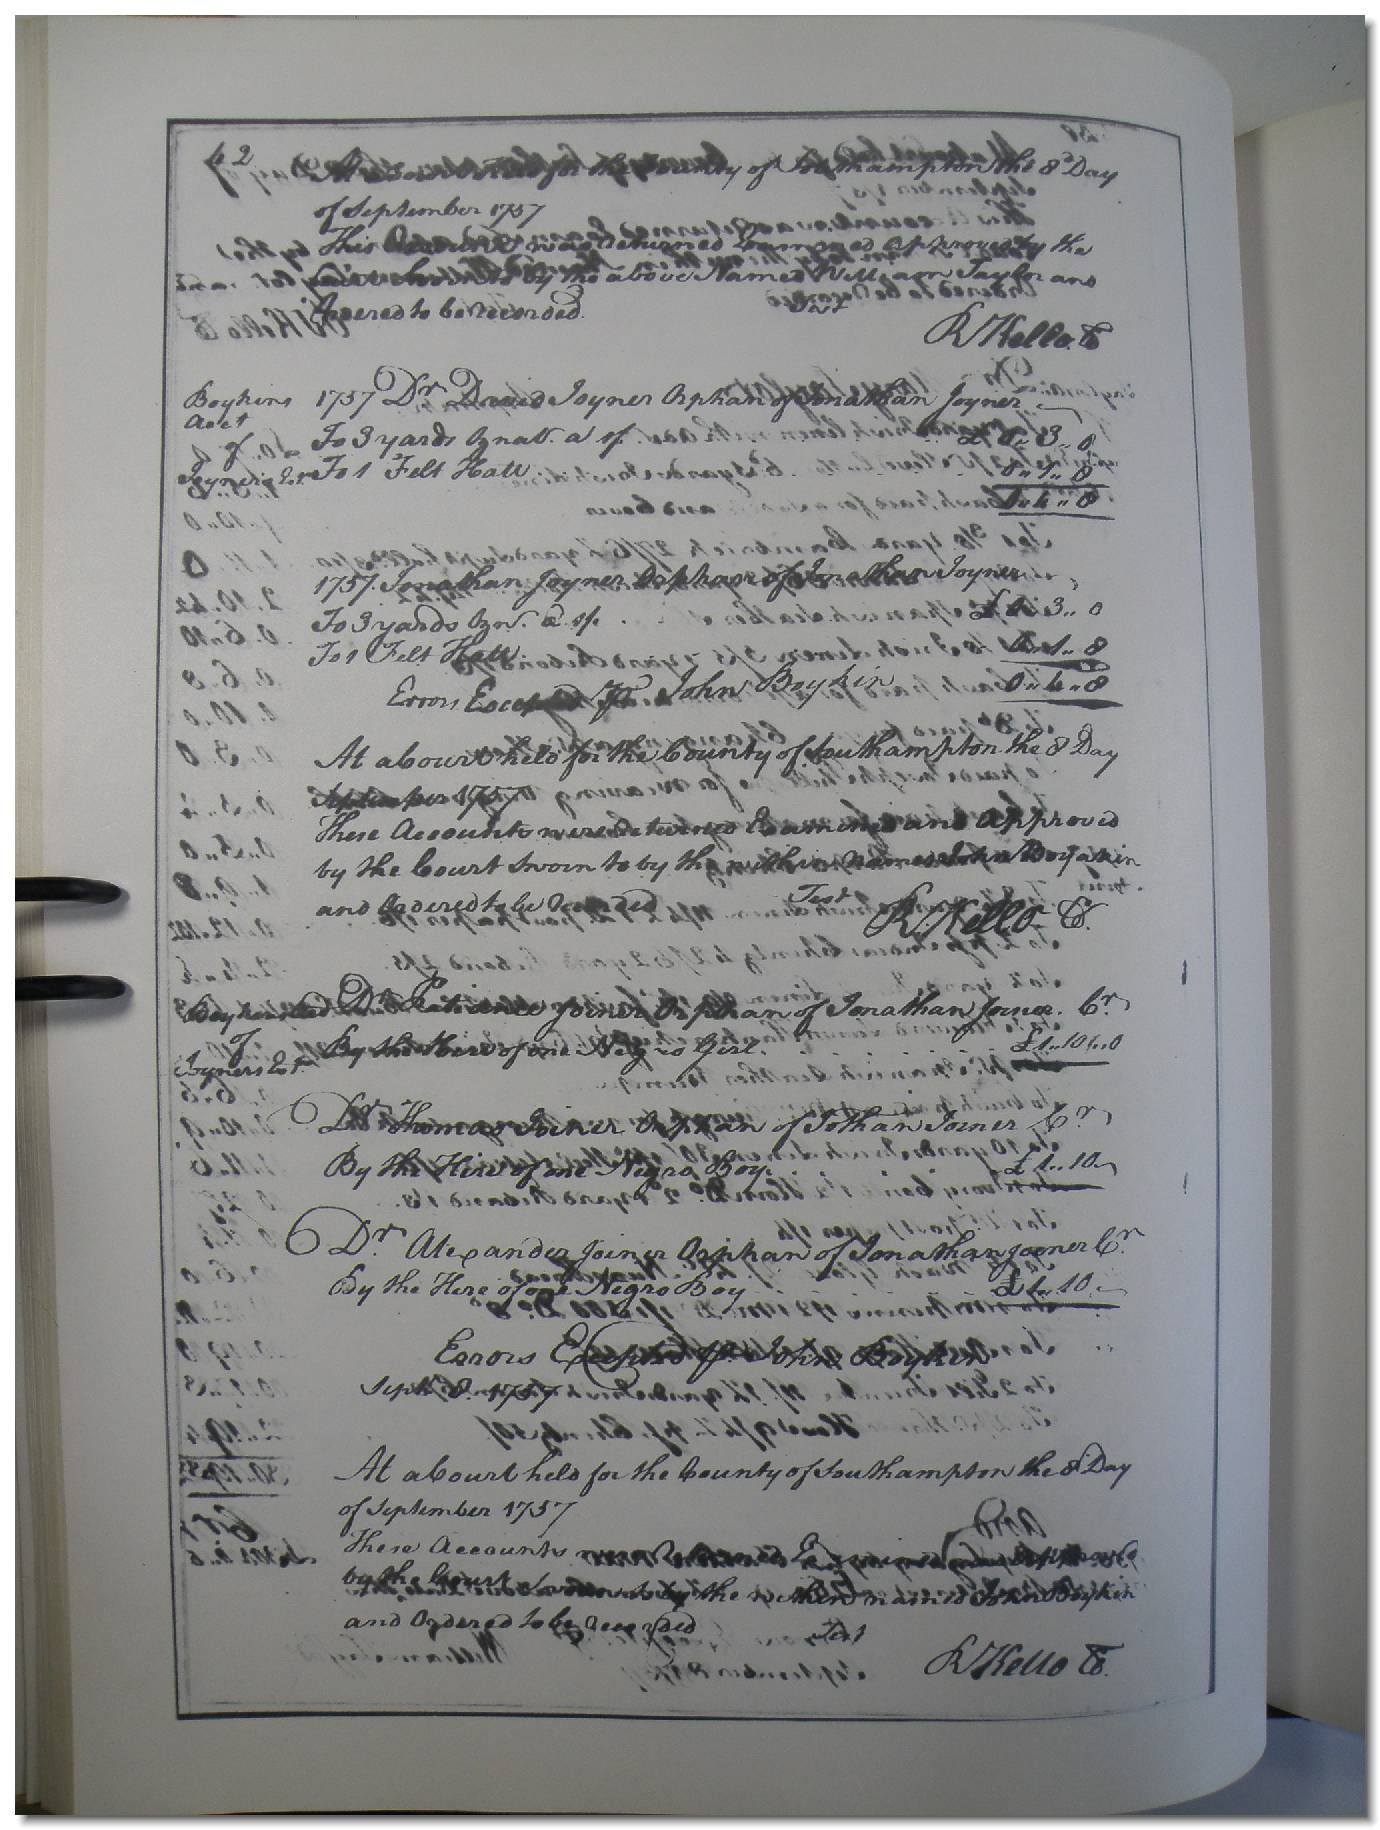 42
At a Court held for the County of Southampton the 8th Day
of September 1757
This Account was Returned Examined Approved by the
Court Sworn to by the above Named William Taylor and
Ordered to be recorded.
Test
R Kello Ck
Boykins
Acct
of
Joyners Est
1757 Dr David Joyner Orphan of Jonathan Joyner
To 3 yards Oznab. a 1/. £ 0,, 3,, 0
To 1 Felt Hatt 0,, 1,, 8
0,, 4,, 8
1757 Jonathan Joyner Orphan of Jonathan Joyner
To 3 yards Ozn. a 1/. £ 0,, 3,, 0
To 1 Felt Hatt 0,, 1,, 8
0,, 4,, 8
Errors Excepted Pr John Boykin
At a Court held for the County of Southampton the 8 Day
September 1757
These Accounts were Returned Examined and Approved
by the Court Sworn to by the within named John Boyakin
and Ordered to be Recorded
Test
R. Kello Ck.
Boykins Acct
of
Joyners Est
Dr Patience Joiner Orphan of Jonathan Joiner. Cr
By the Hire of one Negro Girl. £ 1,, 10,, 0
Dr Thomas Joiner Orphan of Jothan Joiner Cr
By the Hire of one Negro Boy. £ 1,, 10
Dr Alexander Joiner Orphan of Jonathan Joiner Cr
By the Here of one Negro Boy £ 1,, 10
Errors Excepted pr John Boykin
Septr 8. 1757
At a Court held for the County of Southampton the 8 Day
of September 1757
These Accounts were Examined Approved
by the Court Sworn to by the within named John Boykin
and Ordered to be Recorded
Test
R Kello Ck.